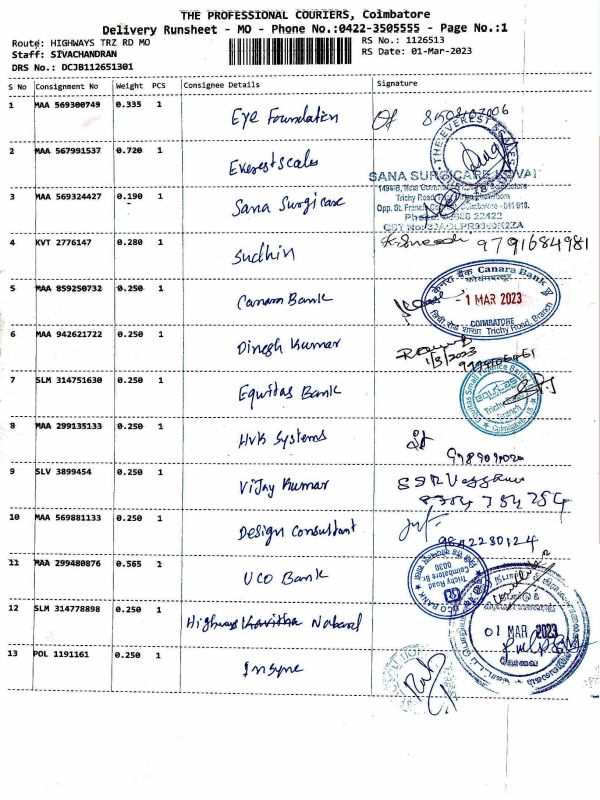 THE PROFESSIONAL COURIERS, Coimbatore
Delivery Runsheet - MO - Phone No.:0422-3505555 - Page No.:1
Route: HIGHWAYS TRZ RD MO
RS No.: 1126513
Staff: SIVACHANDRAN
RS Date: 01-Mar-2023
DRS No.: DCJB112651301
S No Consignment No Weight PCS Consignee Details Signature
1 MAA 569300749 0.335 1 Eye Foundation
2 MAA 567991537 0.720 1 Everest Scales
3 MAA 569324427 0.190 1 Sana Surgicare
SANA SURGICARE KOVAI
4 KVT 2776147 0.280 1 Sudhin 9791684981
5 MAA 859250732 0.250 1 Canara Bank
केनरा बैंक Canara Bank
- 1 MAR 2023
COIMBATORE
Trichy Road, Branch
6 MAA 942621722 0.250 1 Dinesh Kumar
1/3/2023
7 SLM 314751630 0.250 1 Equitas Bank
Equitas Small Finance Bank
equitas
Trichy Road
Branch
8 MAA 299135133 0.250 1 HVK Systems
9 SLV 3899454 0.250 1 Vijay Kumar
8304 754 254
10 MAA 569881133 0.250 1 Design Consultant
9842230124
11 MAA 299480876 0.565 1 UCO Bank
UCO BANK
Trichy Road
Coimbatore Br
0030
12 SLM 314778898 0.250 1 Highways Kavitha Nabard
01 MAR 2023
கோவை
13 POL 1191161 0.250 1 Insyne